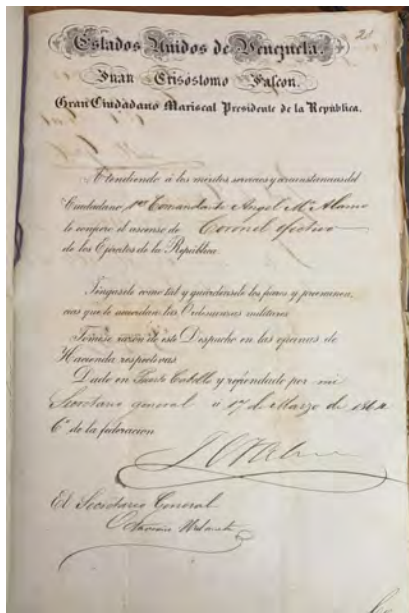 21
Estados Unidos de Venezuela.
Juan Crisóstomo Falcon.
Gran Ciudadano Mariscal Presidente de la República.
Atendiendo á los méritos servicios y circunstancias del
Ciudadano 1er Comandante Angel Mª Alamo
le confiero el ascenso de Coronel efectivo
de los Ejércitos de la República.
Téngasele como tal y guárdensele los fueros y preeminen-
cias que le acuerdan las Ordenanzas militares
Tómese razon de este Despacho en las oficinas de
Hacienda respectivas
Dado en Puerto Cabello y refrendado por mi
Secretario general á 17 de Marzo de 1864
6º de la federacion
El Secretario General